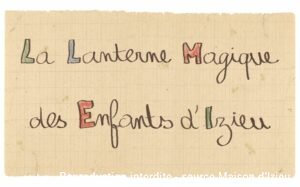 La Lanterne Magique
des Enfants d'Izieu
Reproduction interdite - source Maison d'Izieu